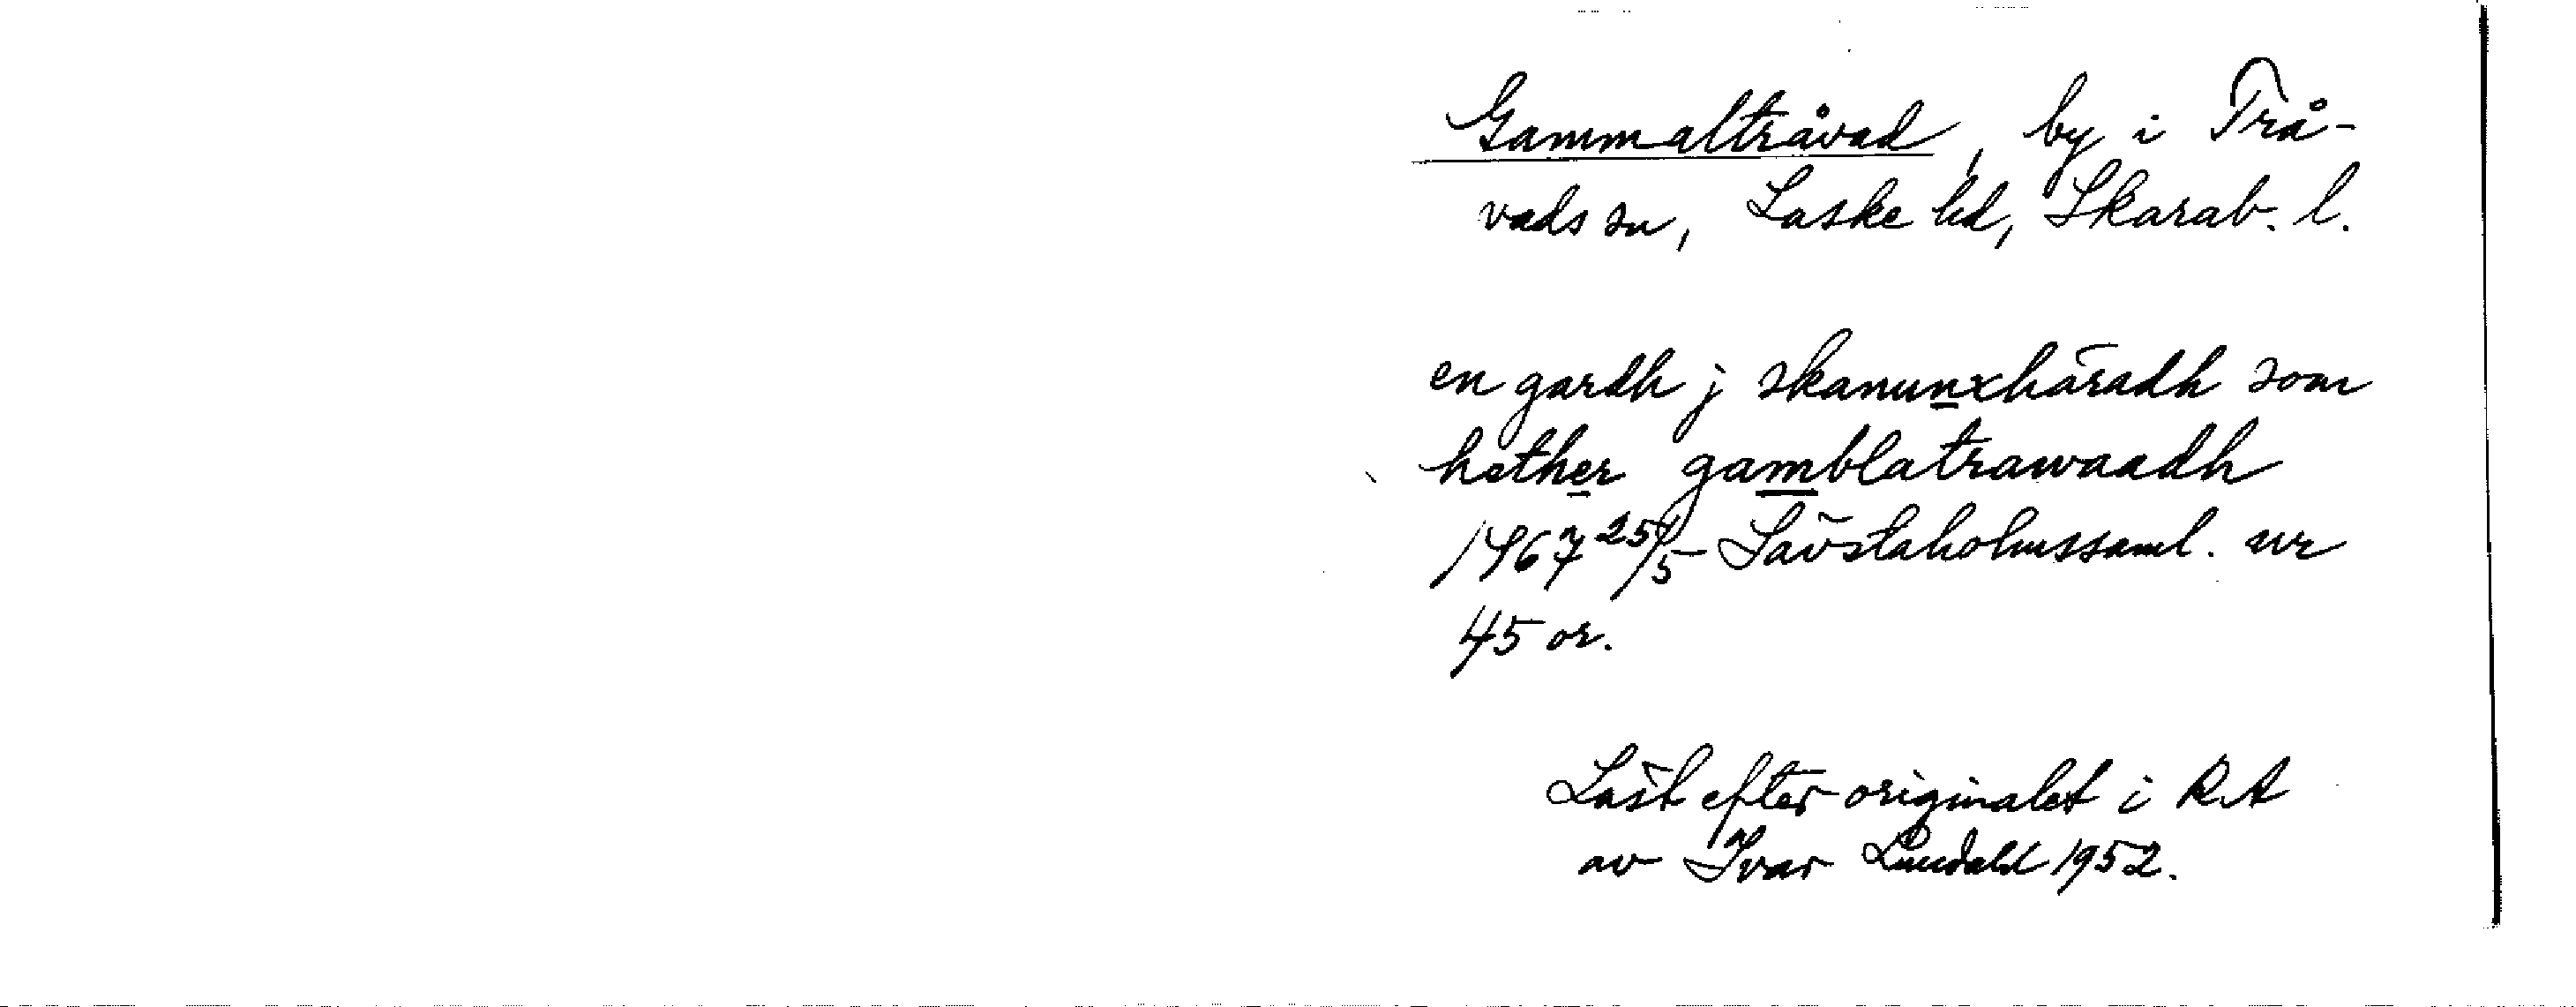 Gammaltråvad, by i Trå-
vads sn, Laske hd, Skarab. l.
en gardh j skanunxhäradh som
hether gamblatrawaadh
1467 25/5 Sävstaholmssaml. nr
45 or.
Läst efter originalet i RA
av Ivar Lundahl 1952.